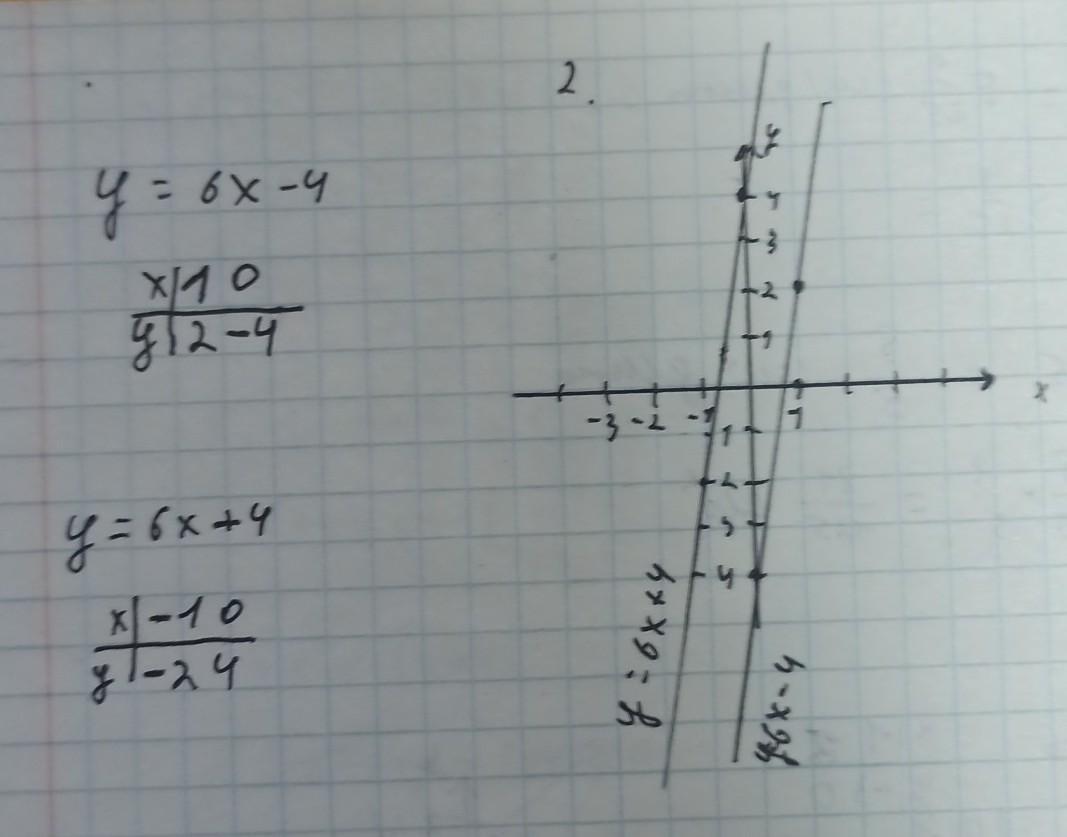 2.
y = 6x - 4
x | 1 0
y | 2 -4
y = 6x + 4
x | -1 0
y | -2 4
y
4
3
2
1
-3 -2 -1 1 x
1
2
3
4
y = 6x x 4
y=6x-4